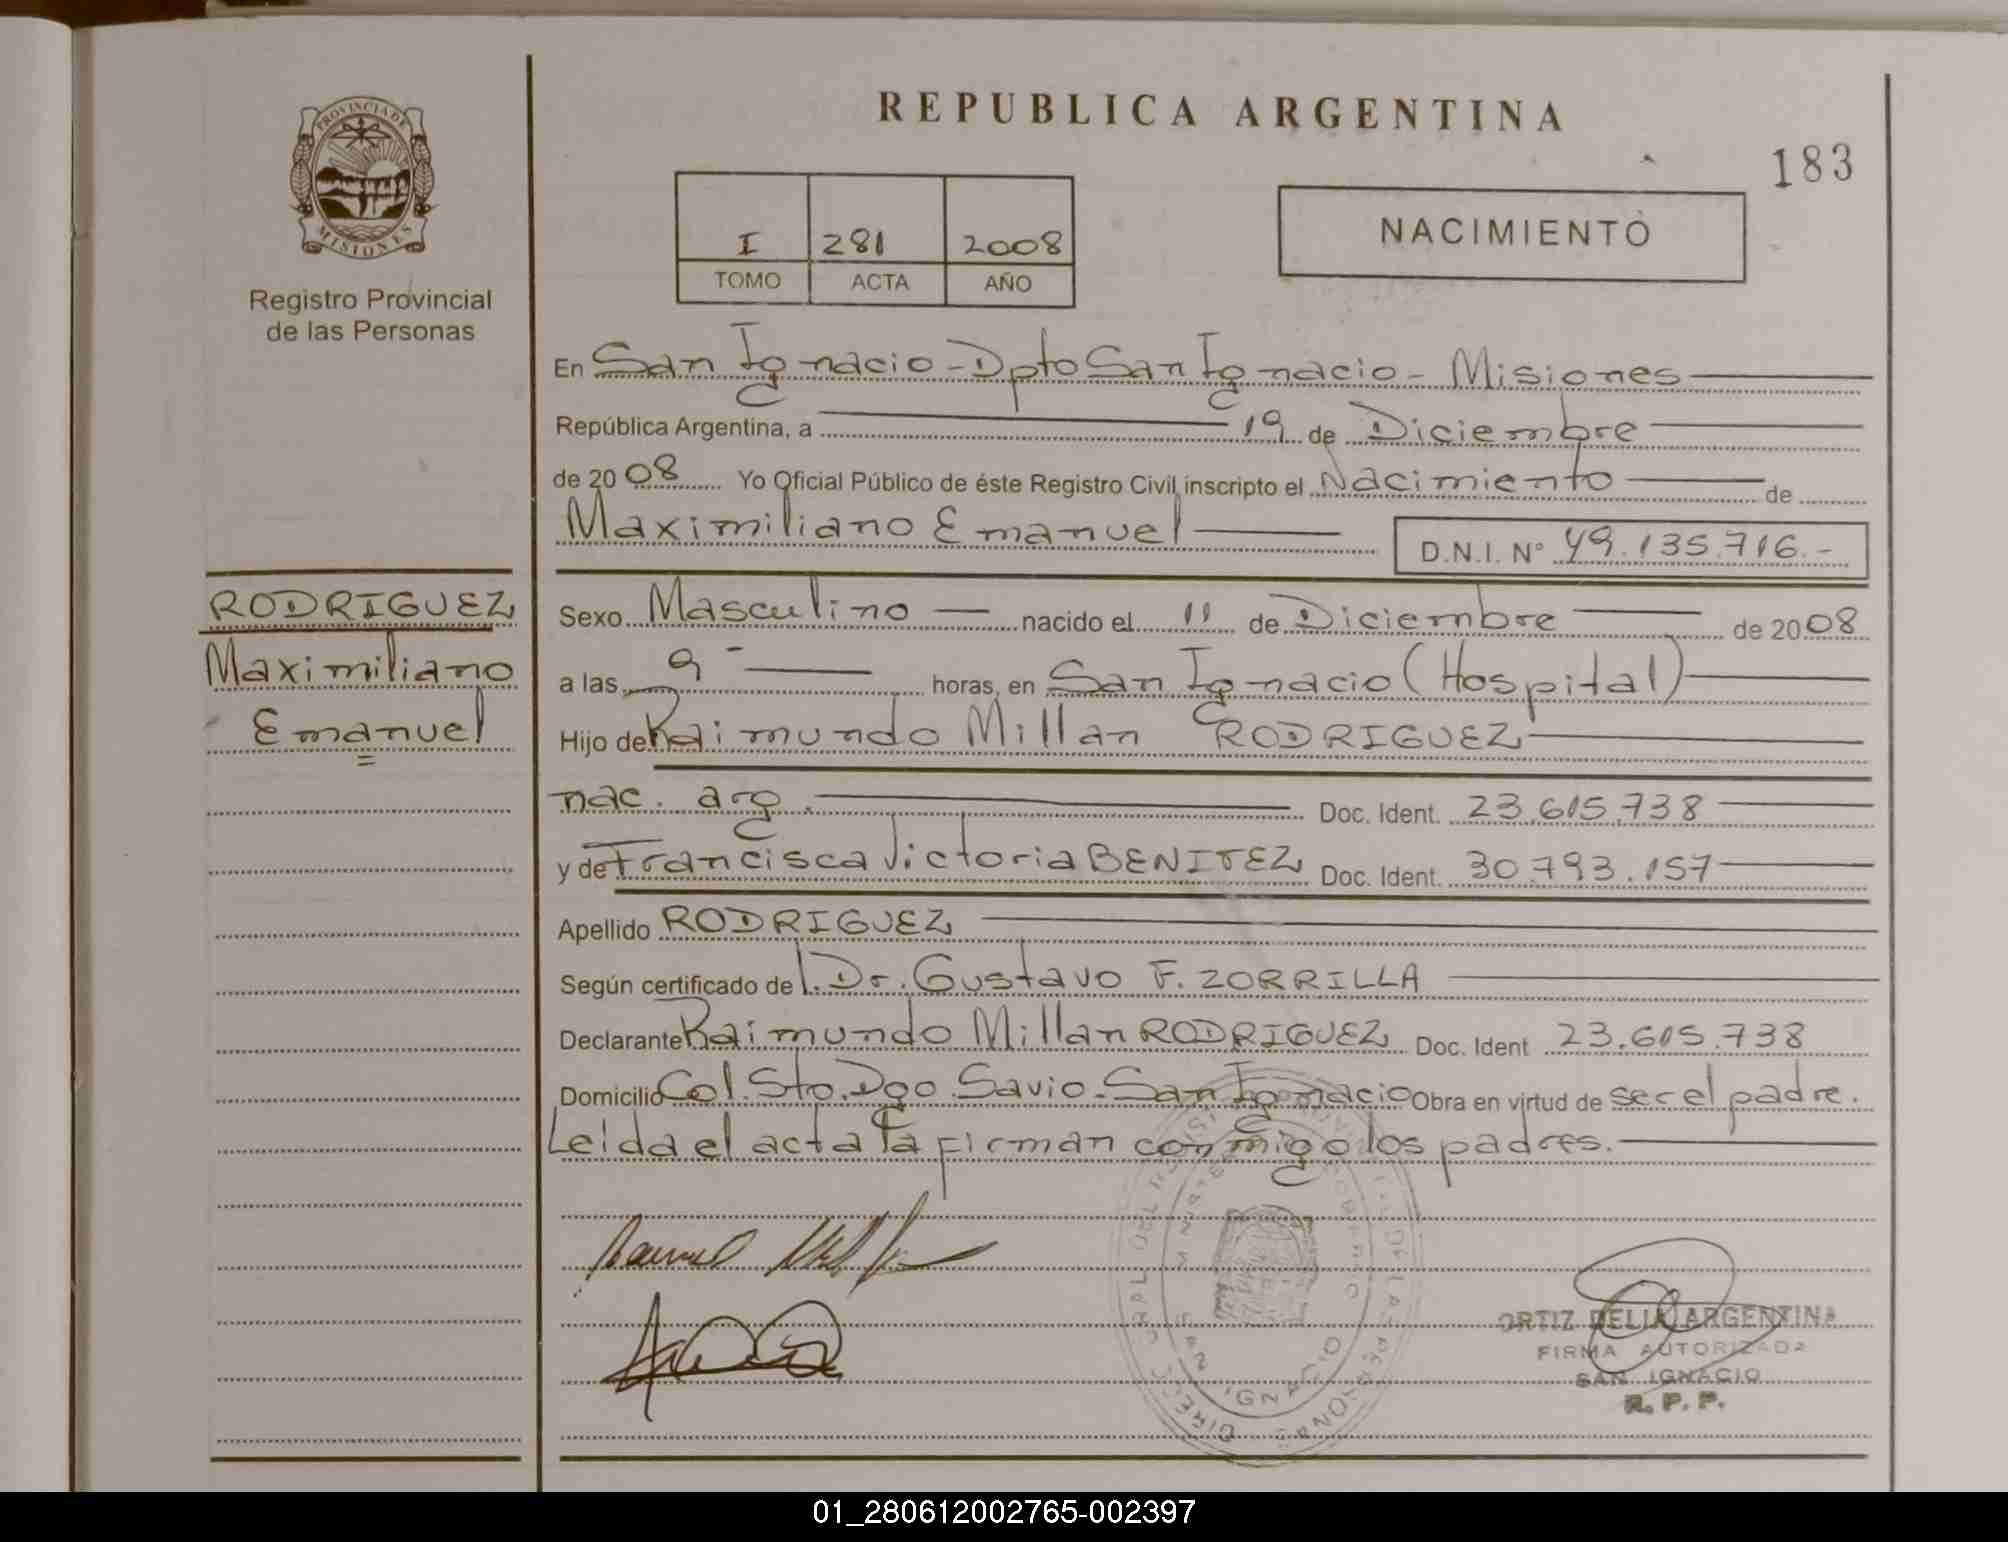 REPUBLICA ARGENTINA
183
PROVINCIA DE
MISIONES
Registro Provincial
de las Personas
I 281 2008
TOMO ACTA AÑO
NACIMIENTO
En San Ignacio - Dpto San Ignacio - Misiones
República Argentina, a 19 de Diciembre
de 2008 Yo Oficial Público de éste Registro Civil inscripto el Nacimiento de
Maximiliano Emanuel D.N.I. N° 49.135.716.-
RODRIGUEZ
Maximiliano
Emanuel
Sexo Masculino nacido el 11 de Diciembre de 2008
a las 9 horas, en San Ignacio (Hospital)
Hijo de Raimundo Millan RODRIGUEZ
nac. arg. Doc. Ident. 23.615.738
y de Francisca Victoria BENITEZ Doc. Ident. 30.793.157
Apellido RODRIGUEZ
Según certificado de l. Dr. Gustavo F. ZORRILLA
Declarante Raimundo Millan RODRIGUEZ Doc. Ident 23.615.738
Domicilio Col. Sto. Dgo. Savio - San Ignacio Obra en virtud de ser el padre.
Leida el acta la firman conmigo los padres.
SAN IGNACIO
ORTIZ DELIA ARGENTINA
FIRMA AUTORIZADA
SAN IGNACIO
R. P. P.
01_280612002765-002397